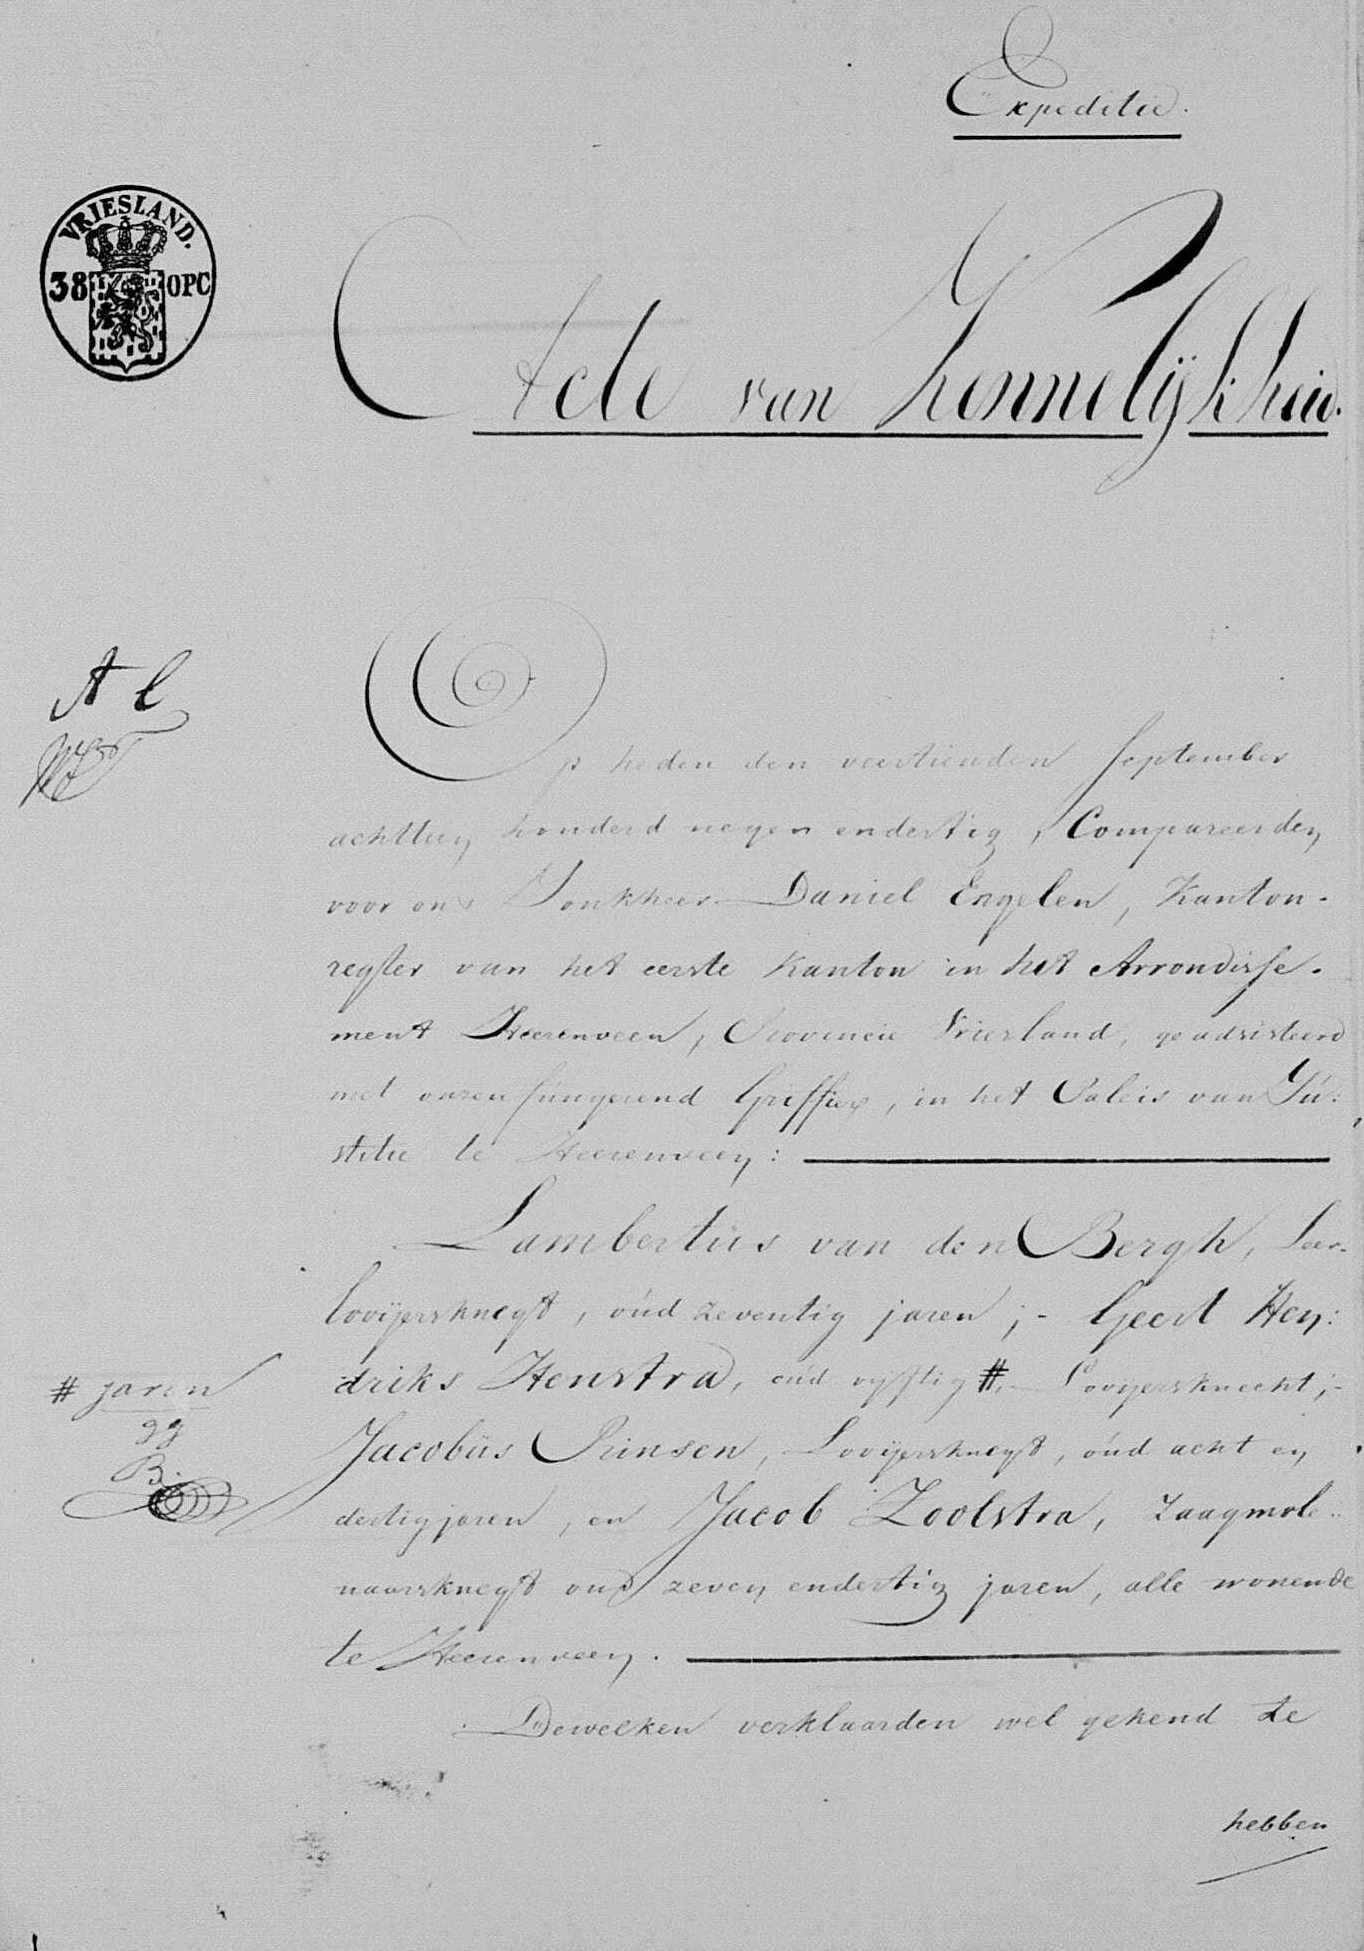 Expeditie.
VRIESLAND.
38 OPC
Acte van Kennelijkheid.
A l
Op heden den veertienden September
achttien honderd negen endertig, Compareerden
voor ons Jonkheer Daniel Engelen, Kanton-
regter van het eerste Kanton in het Arrondisse-
ment Heerenveen, Provincie Vriesland, geadsisteerd
met onzen fungerend Griffier, in het Paleis van Ju:
stitie te Heerenveen:
Lambertus van den Bergh, Leer-
looijersknegt, oud zeventig jaren; - Geert Hen:
driks Henstra, oud vijftig #, Looijersknecht; -
# jaren
gg
B.
Jacobus Prinsen, Looijersknegt, oud acht en
dertig jaren, en Jacob Zoolstra, Zaagmole-
naarsknegt oud zeven endertig jaren, alle wonende
te Heerenveen.
Dewelken verklaarden wel gekend te
hebben